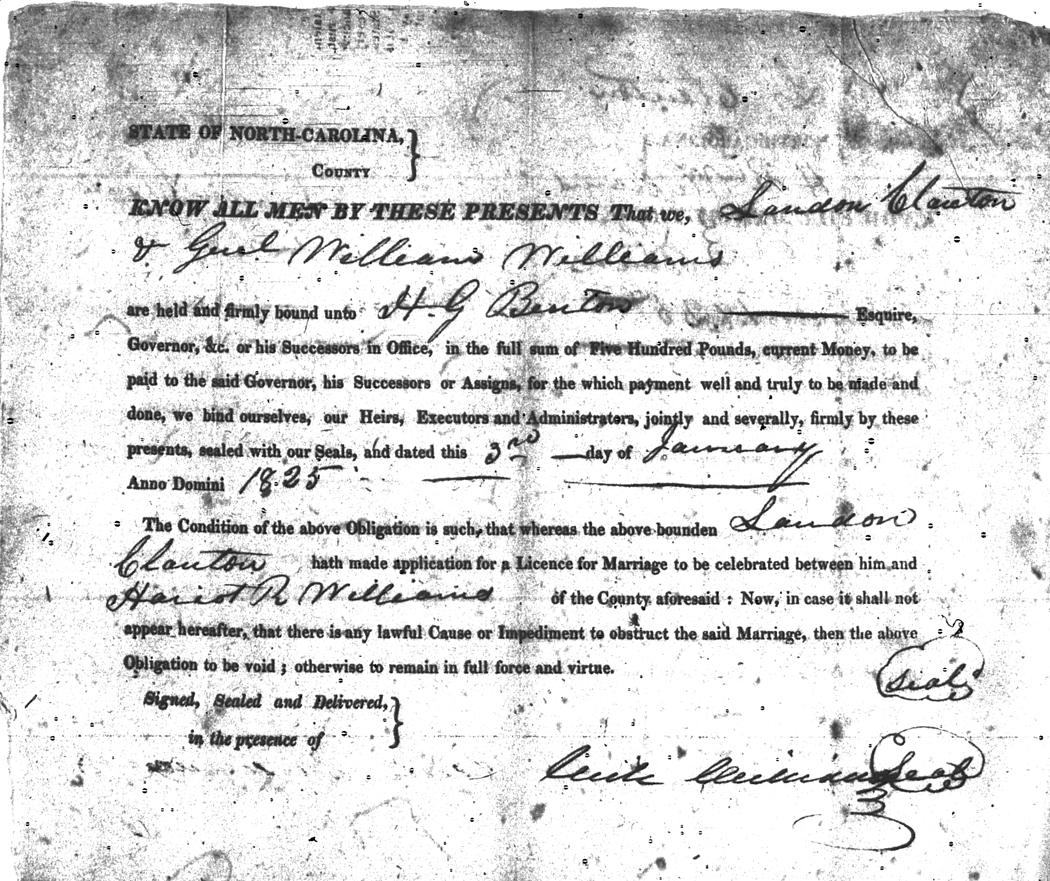 STATE OF NORTH-CAROLINA,
COUNTY
KNOW ALL MEN BY THESE PRESENTS That we, Landon Clanton
& Genl. William Williams
are held and firmly bound unto H. G Benton Esquire,
Governor, &c. or his Successors in Office, in the full sum of Five Hundred Pounds, current Money, to be
paid to the said Governor, his Successors or Assigns, for the which payment well and truly to be made and
done, we bind ourselves, our Heirs, Executors and Administrators, jointly and severally, firmly by these
presents, sealed with our Seals, and dated this 3rd day of January
Anno Domini 1825
The Condition of the above Obligation is such, that whereas the above bounden Landon
Clanton hath made application for a Licence for Marriage to be celebrated between him and
Hariot R Williams of the County aforesaid : Now, in case it shall not
appear hereafter, that there is any lawful Cause or Impediment to obstruct the said Marriage, then the above
Obligation to be void ; otherwise to remain in full force and virtue.
seal
Signed, Sealed and Delivered,
in the presence of
Seal